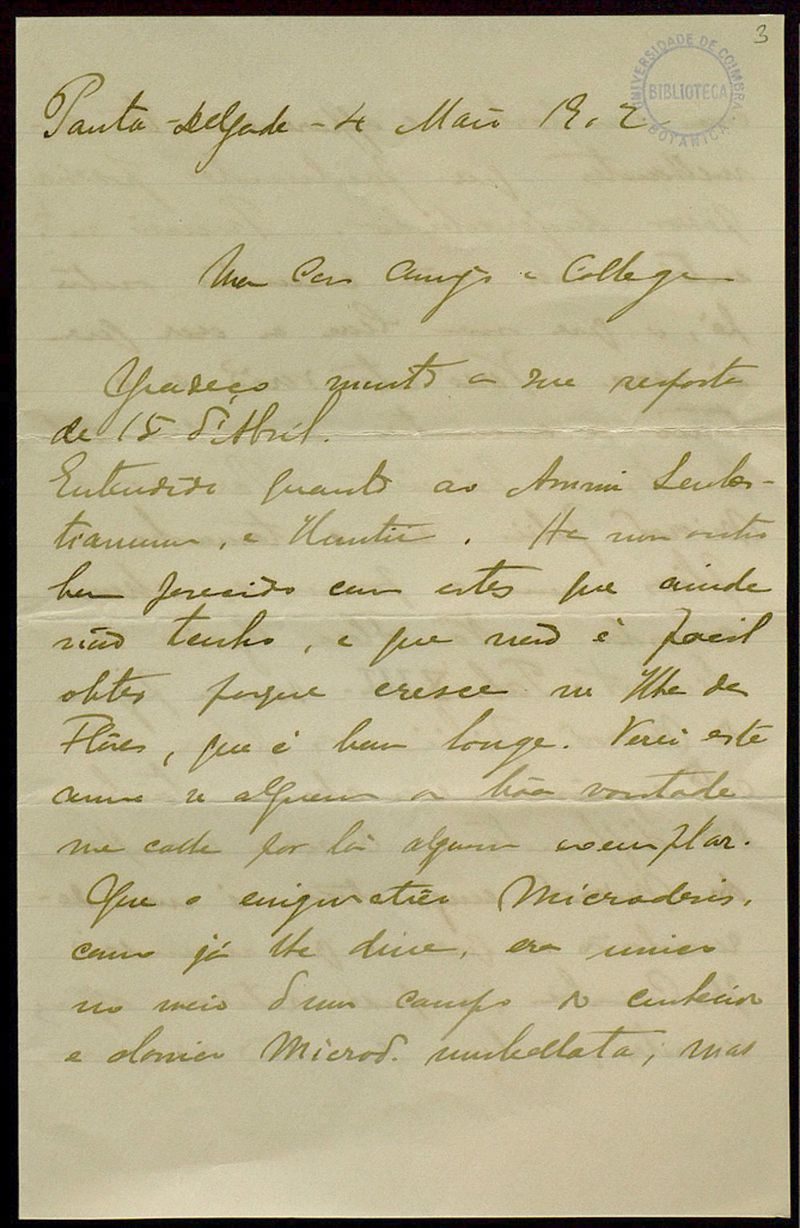 3
UNIVERSIDADE DE COIMBRA
BIBLIOTECA
BOTANICA
Ponta-Delgada - 4 Maio 1902
Meu Caro Amigo e Collega
Agradeço muito a sua resposta
de 15 d'Abril.
Entendido quanto ao Ammi Seubertianum, e Huntii. Ha um outro
bem parecido com estes que ainda
não tenho, e que não é facil
obter porque cresce na Ilha das
Flôres, que é bem longe. Verei este
anno se alguem de bôa vontade
me colhe por lá algum exemplar.
Que o enigmatico Microderis,
como já lhe disse, era unico
no meio d'um campo de
e Microd. umbellata; mas